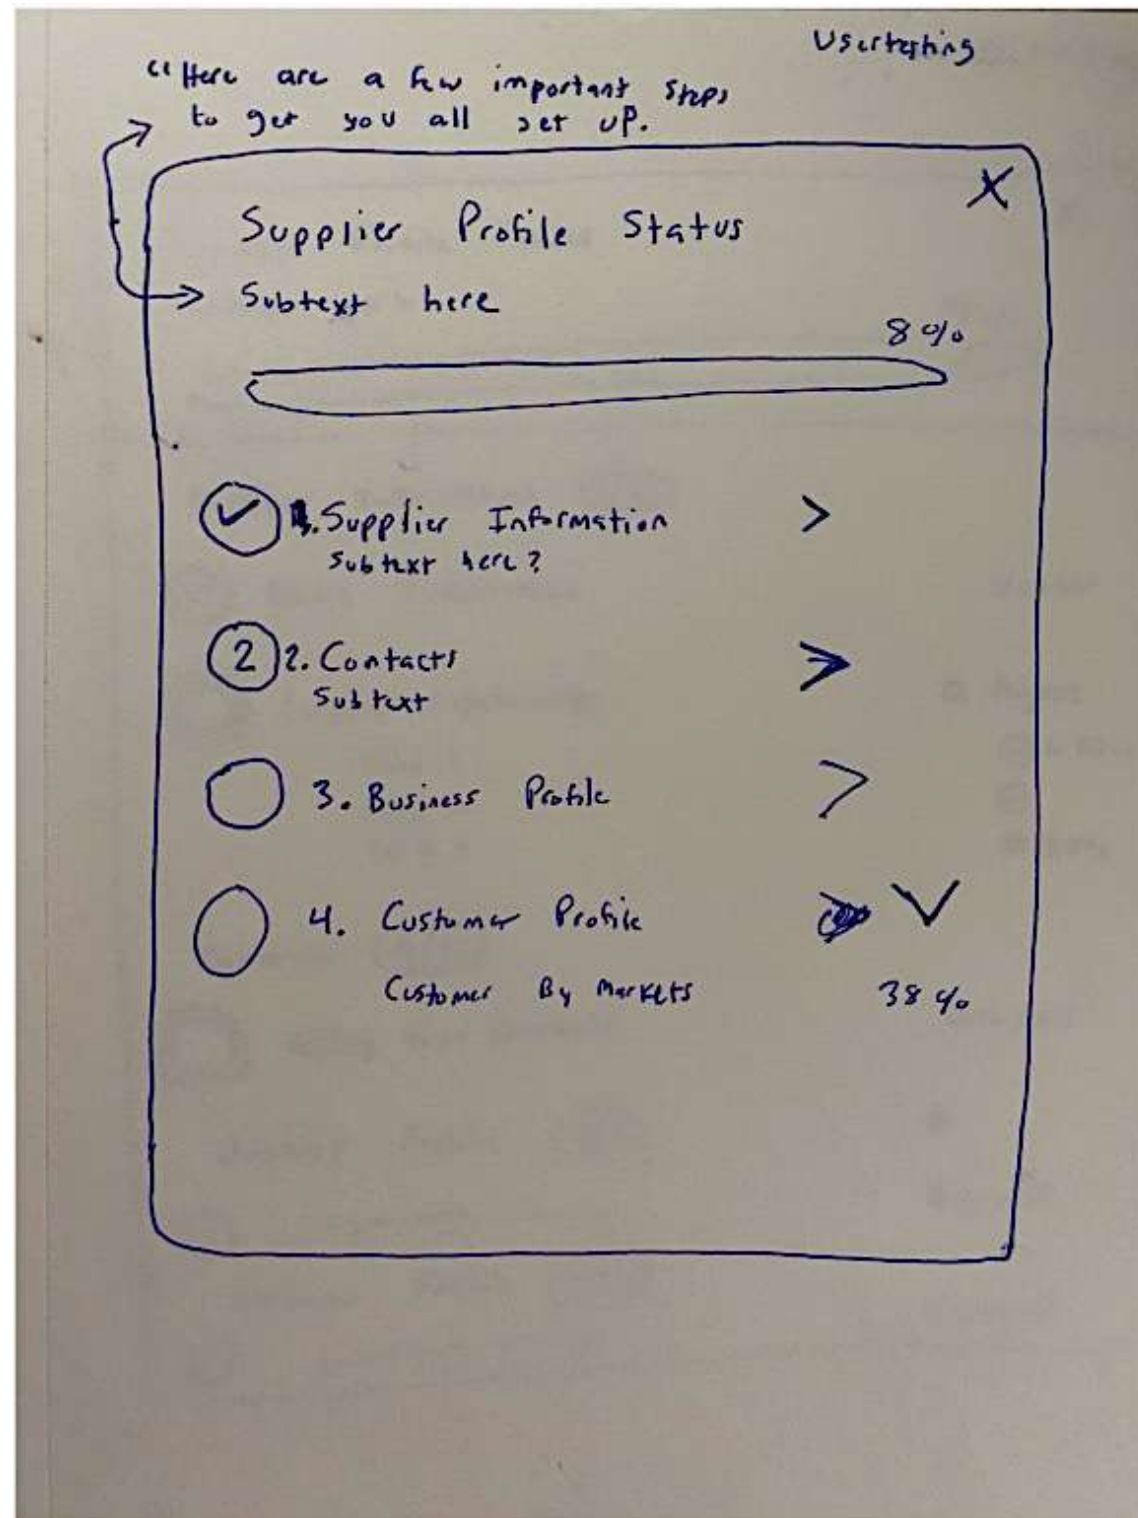 Usertesting
"Here are a few important steps
to get you all set up.
X
Supplier Profile Status
Subtext here
8%
1. Supplier Information >
Subtext here?
2 2. Contacts >
Subtext
3. Business Profile >
4. Customer Profile
Customer By Markets 38%